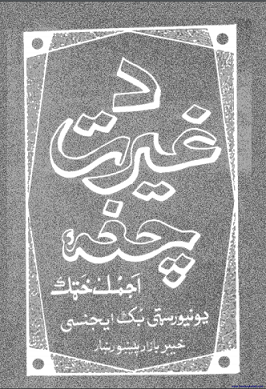 د
غیرت
چغه
اجمل خټک
یونیورسټی بک ایجنسی
خیبر بازار پشاور